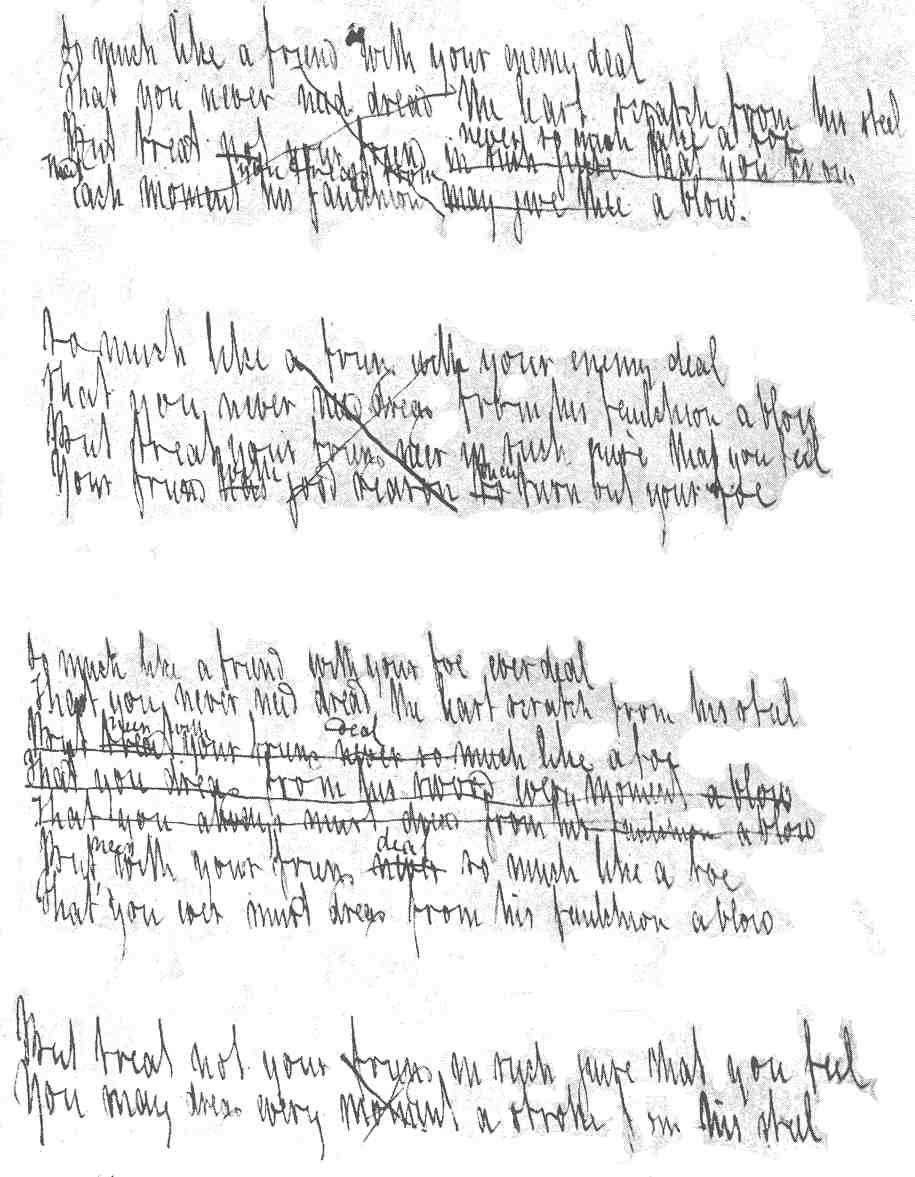 So much like a friend with your enemy deal
That you never need dread the least scratch from his steel
never so much like a foe
But treat not your friend in such guise that you know
must dread from
Each moment his faulchion may give thee a blow.
So much like a frien with your enemy deal
That you never need dread from his faulchion a blow
But treat your friend neer in such guise that you feel
Your friend good reason to turn out your foe
So much like a friend with your foe ever deal
That you never need dread the least scratch from his steel
deal
But treat your friend never so much like a foe
That you dread from his sword every moment a blow
That you always must dread from his faulchion a blow
neer deal
But with your friend never so much like a foe
That you ever must dread from his faulchion a blow
But treat not your friend in such guise that you feel
You may dread every moment a stroke from his steel